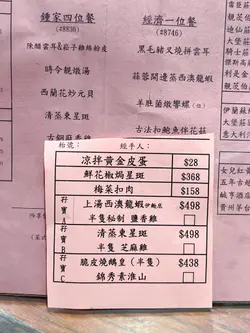 鍾家四位餐
(#8836)
陳醋雲耳&崧子雞絲紛皮
時令靚燉湯
西蘭花炒元貝
清蒸東星斑
經濟一位餐
(#8746)
黑毛豬叉燒拼雲耳
蒜蓉開邊蒸西澳龍蝦
羊肚菌燉響螺
古法扣鮑魚伴花菇
枱號: 經手人:
凉拌黃金皮蛋 $28
鮮花椒焗星斑 $368
梅菜扣肉 $158
孖寶A 上湯西澳龍蝦伊麵底 $498
半隻秘制 鹽香雞
孖寶B 清蒸東星斑 $498
半隻 芝麻雞
孖寶C 脆皮燒鵝皇（半隻） $438
錦秀素淮山